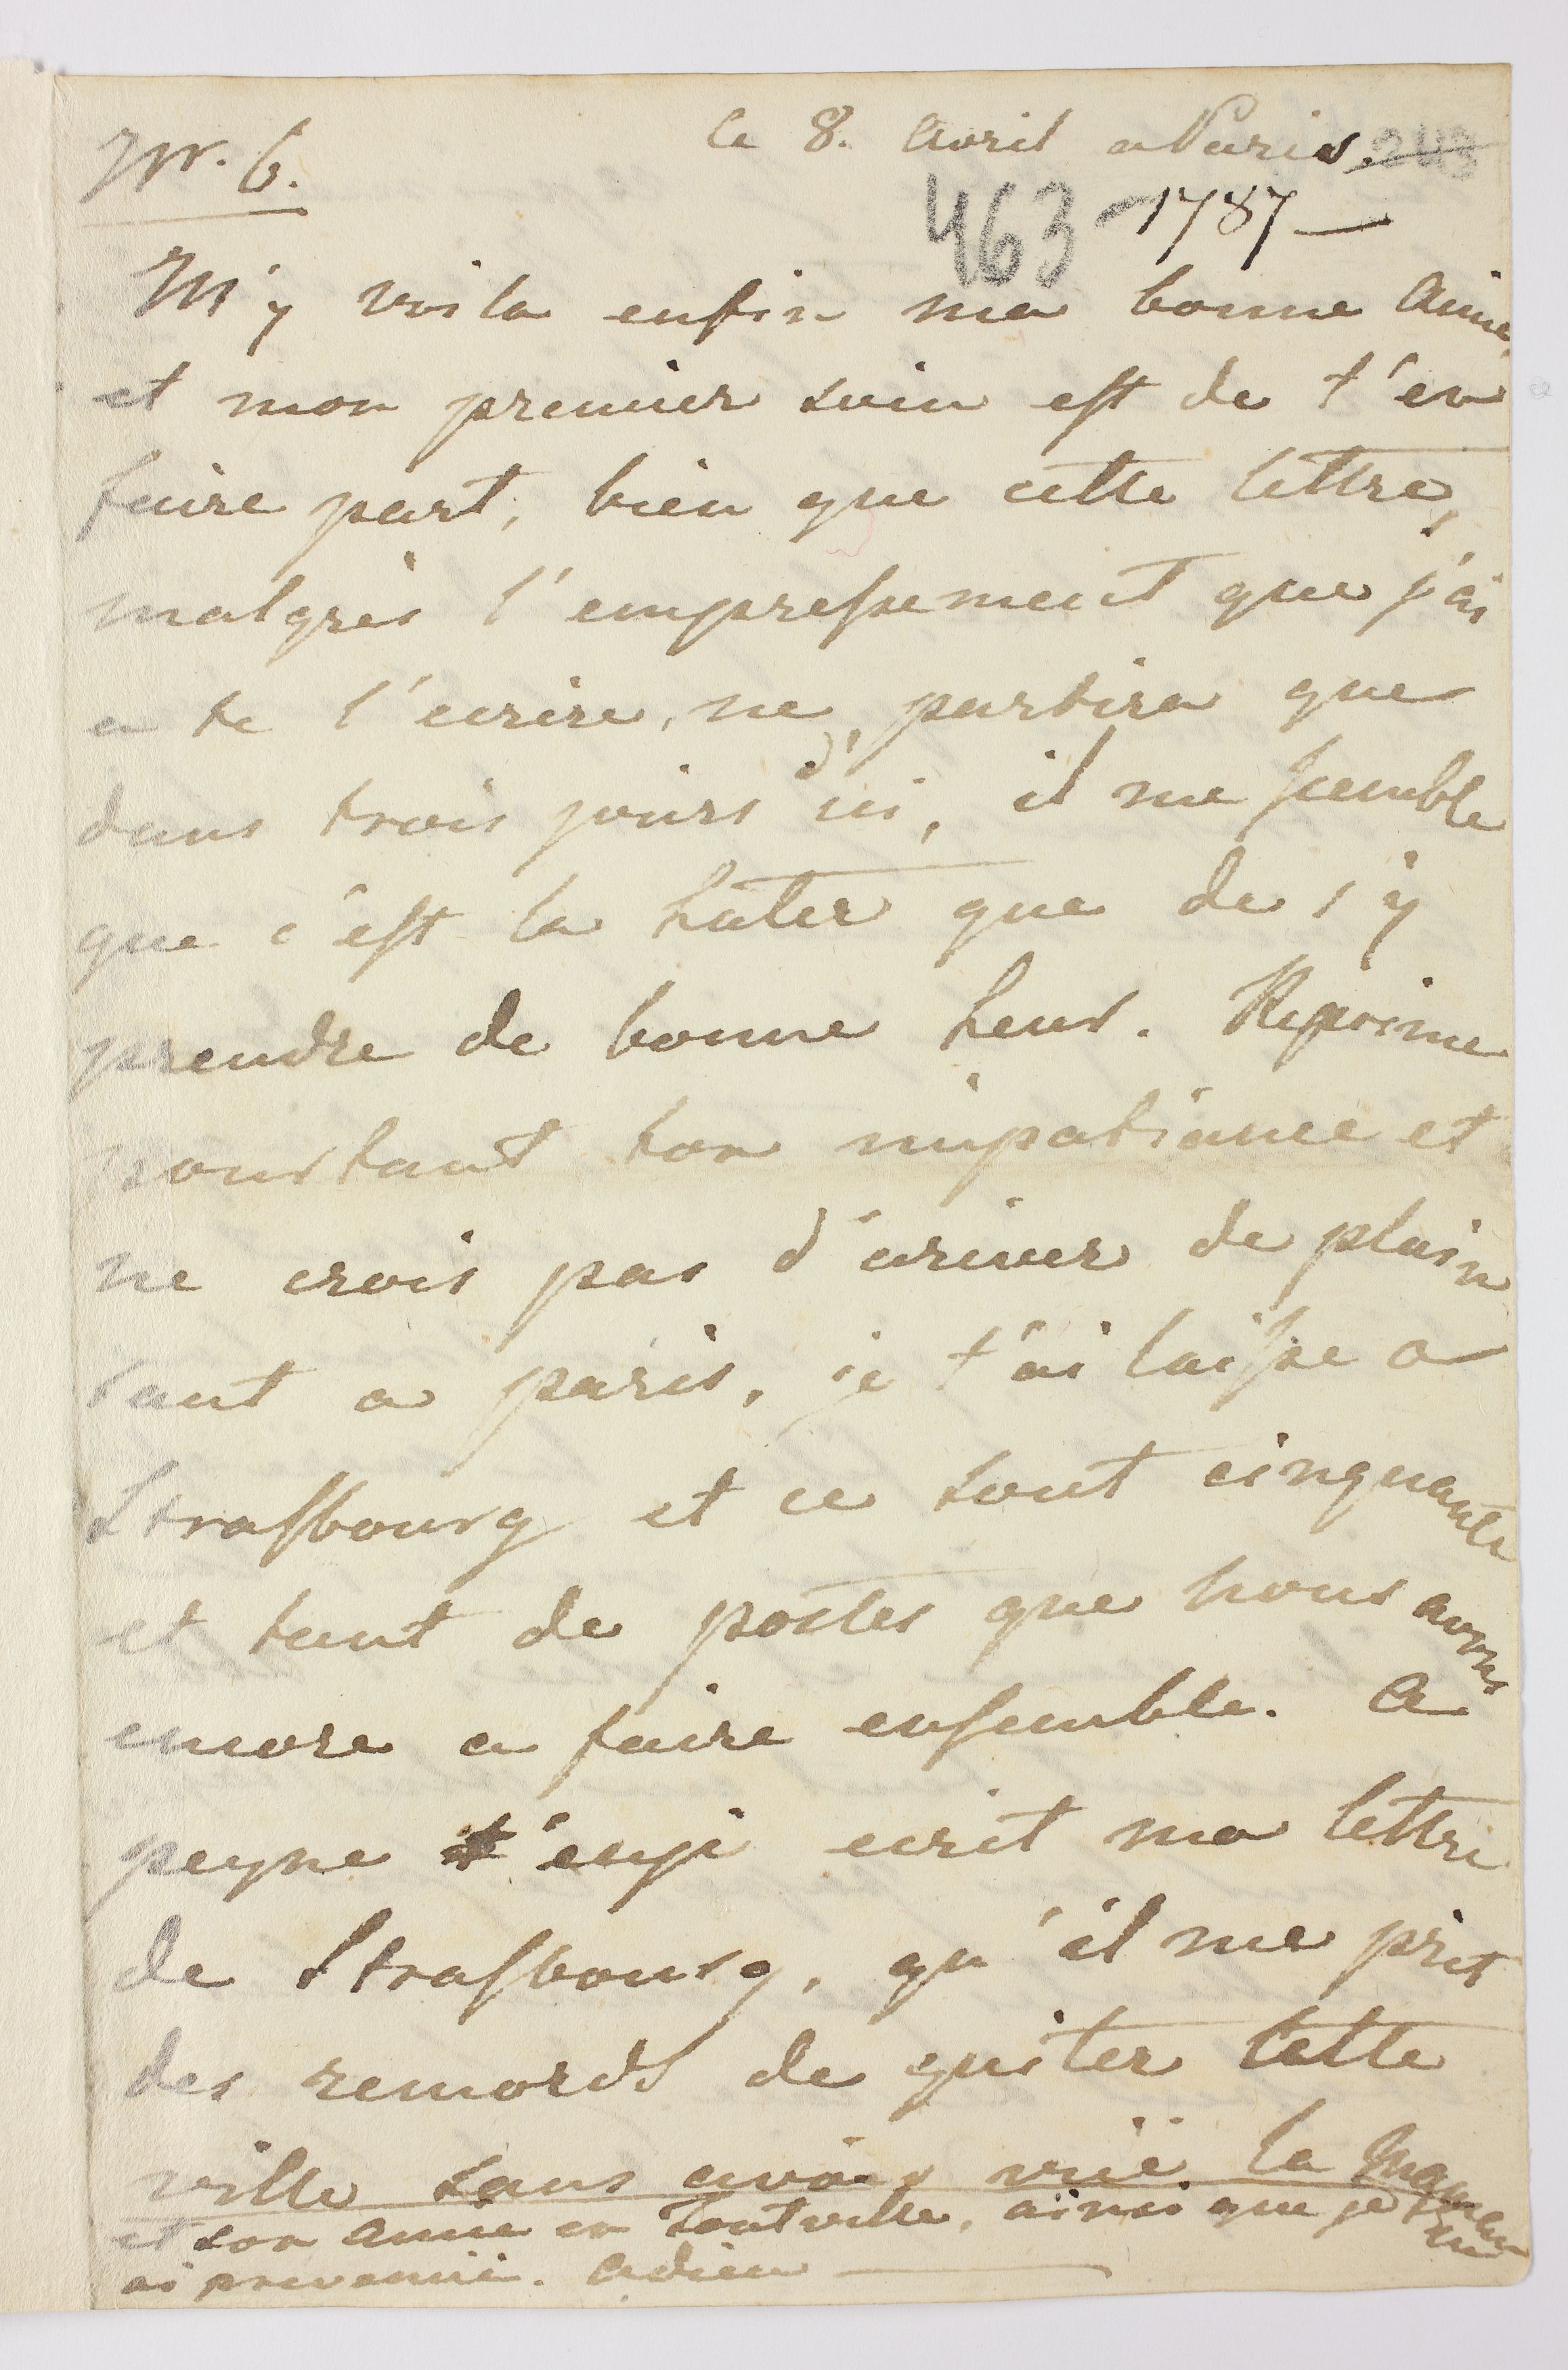 le 8. Avril a Paris. 248
Nr. 6.
463 -1787-
M'y voila enfin ma bonne Amie,
et mon premier soin est de t'en
faire part, bien que cette lettre,
malgrès l'empressement que j'ai
a te l'ecrire, ne partira que
dans trois jours d'ici, il me semble
que c'est la hâter que de s'y
prendre de bonne heur. Reprime
pourtant ton impatiance et
ne crois pas d'ariver de plain
saut a paris, je t'ai laisse a
Strasbourg et ce sont cinquante
et tant de postes que nous avons
encore a faire ensemble. A
peyne eus-je ecrit ma lettre
de Strasbourg, qu'il me prit
des remords de quiter cette
ville sans avoir vuë la Maman
et son amie en Toutville, ainsi que je t'en
ai prevenuë. Adieu